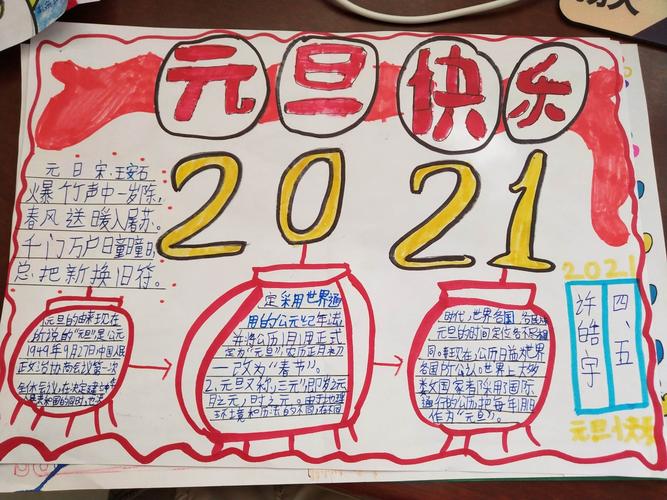 元旦快乐
2021
元日 宋 王安石
火暴竹声中一岁除,
春风送暖入屠苏。
千门万户曈曈日,
总把新换旧符。
元旦的由来现在
所说的"元旦"是公元
1949年9月27日中国人民
政治协商会议第一次
全体会议,在决定建
定采用世界通
用的公元纪年法
并将公历1月1日正式
定为"元旦",农历正月初
一改为"春节"。
2.元旦又称"三元",即岁之元
月之元,时之元。由于地理
环境和历法的不同,在不同
时代,世界各国,各民
元旦的时间定位各不相
同。现在,公历日益为世界
各国所公认,世界上大多
数国家者采用了国际
通行的公历把每年1月1
作为"元旦"。
2021
四、五
许皓宇
元旦快乐